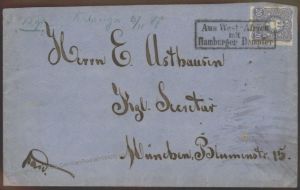 Aus West-Afrika
mit
Hamburger Dampfer
Herrn E. Asthausen
Kgl. Secretär
München, Blumenstr. 15.